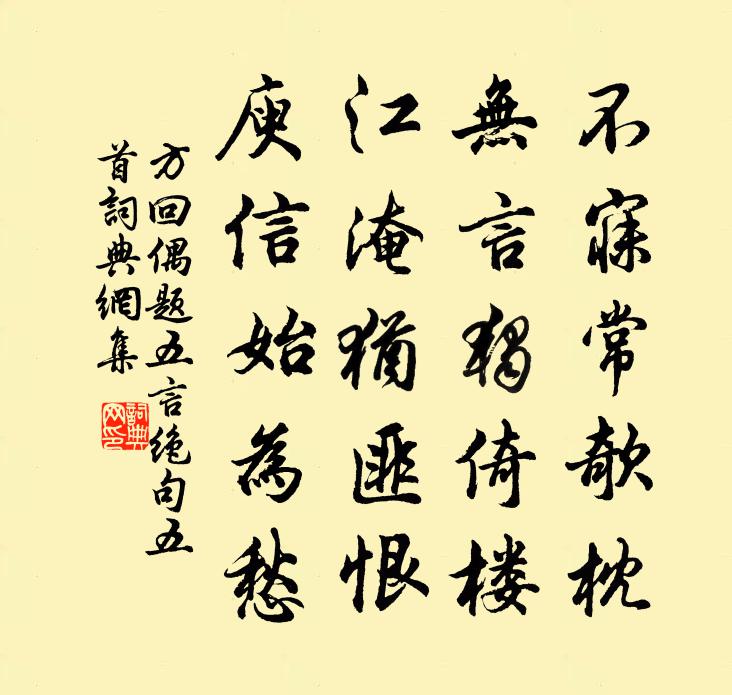 不寐常欹枕
無言獨倚楼
江淹猶匪恨
庾信始為愁
方回偶题五言绝句五
首詞典網集
詞典
网印